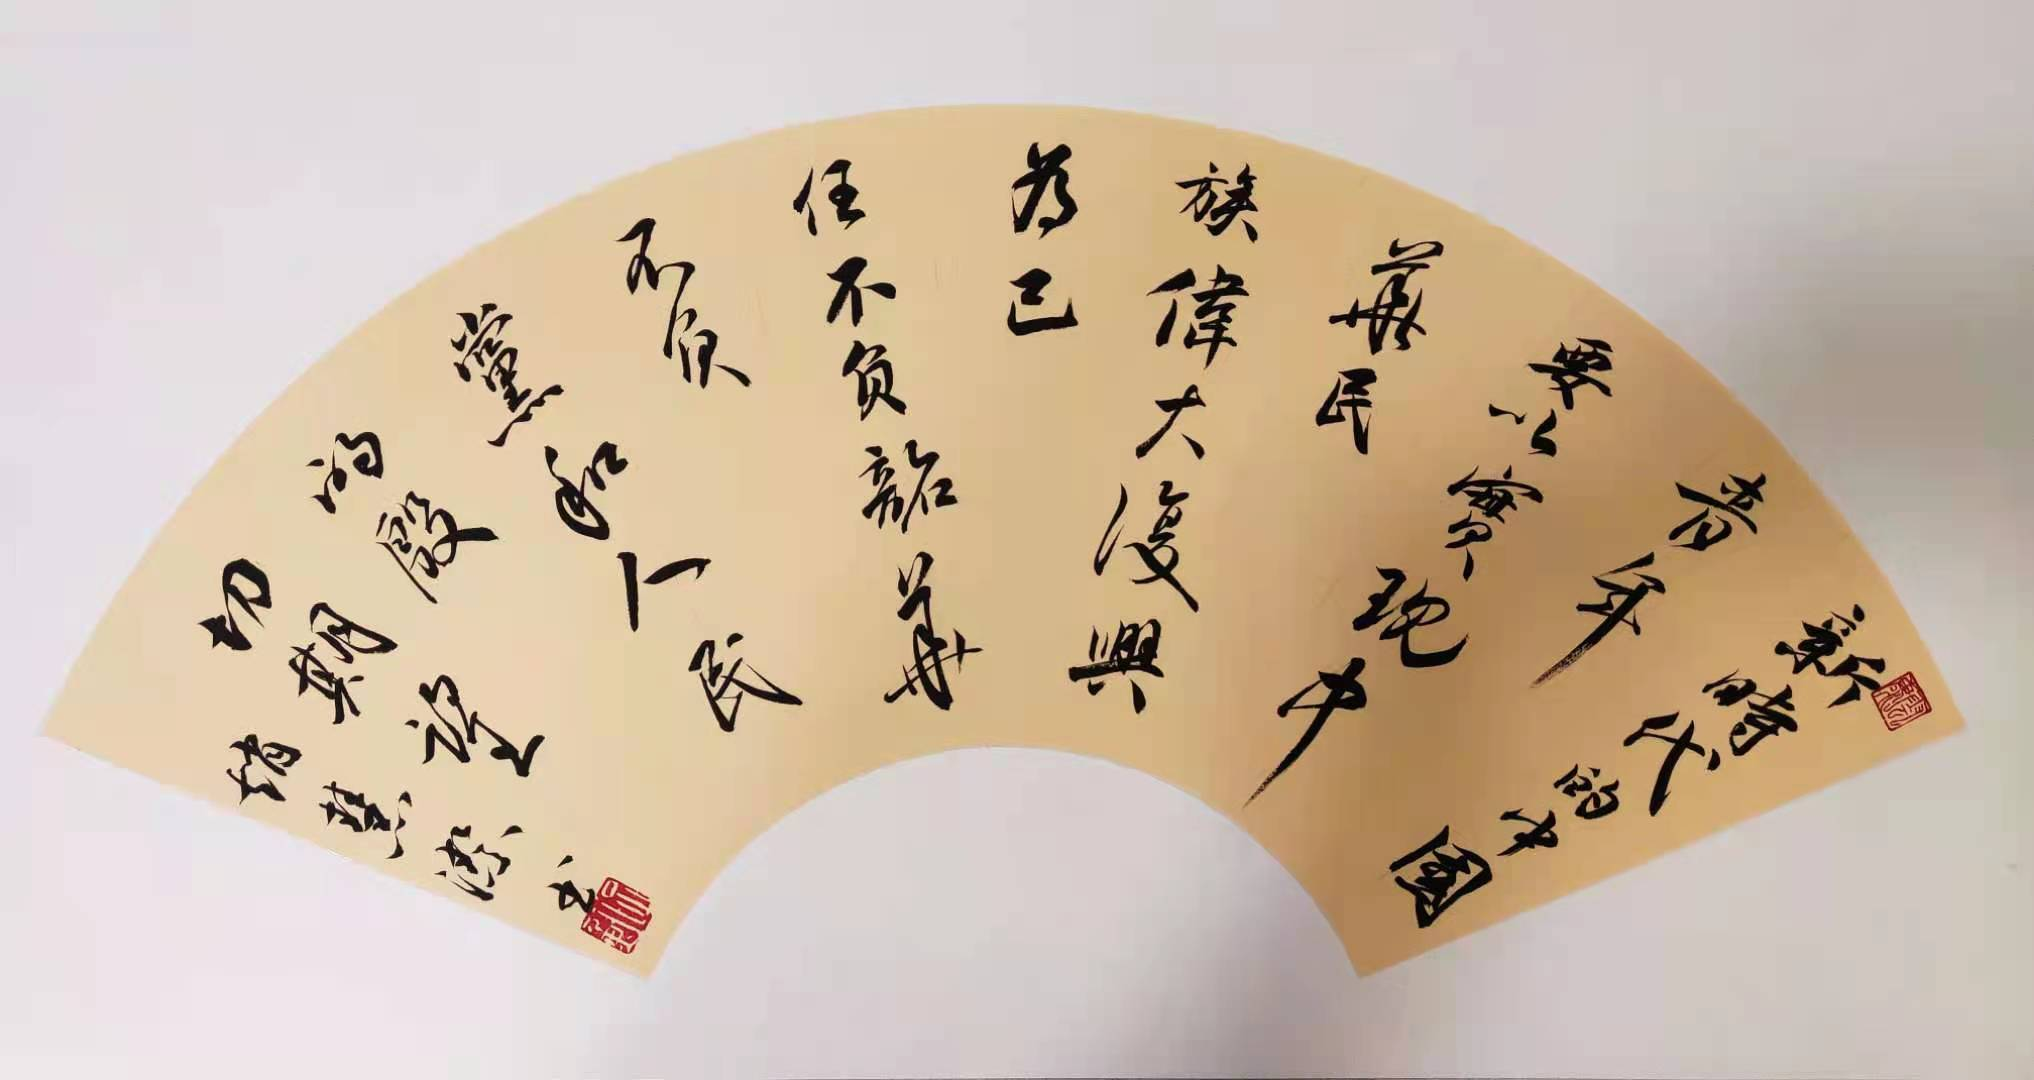 新時代的中國
青年
要以實現中
華民
族偉大復興
為己
任不負韶華
不負
黨和人民
的殷
切期望